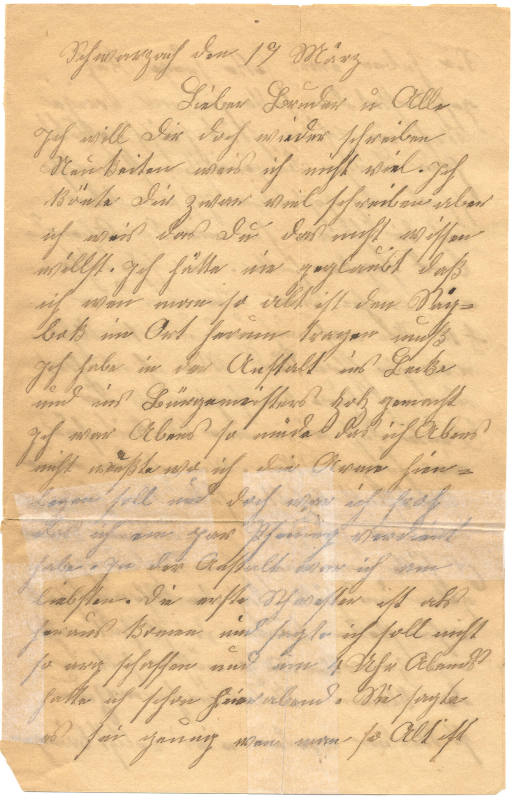 Schwarzach den 17 März
Lieber Bruder u Alle
Ich will Dir doch wieder schreiben
Neukeiten weis ich nicht viel. Ich
könte Dir zwar viel schreiben aber
ich weis das Du das nicht wissen
willst. Ich hätte nie geglaubt daß
ich wen man so alt ist den Säg=
bok im Ort herum tragen muß
Ich habe in der Anstalt ins Becke
und ins Bürgemeisters holz gemacht
Ich war Abens so müde das ich Abens
nicht wußte wo ich die Arme hin=
legen soll und doch war ich froh
das ich ein par Pfennig verdient
habe. In der Anstalt war ich am
liebsten. Die erste Schwester ist als
heraus komen und sagte ich soll nicht
so arg schaffen und um 4 Uhr Abends
hatte ich schon feierabend. Sie sagte
es sei genug wen man so Alt ist